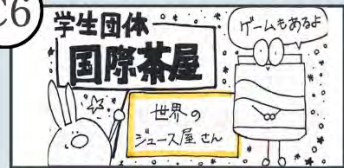 C6
学生団体
国際茶屋
ゲームもあるよ
世界の
ジュース屋さん